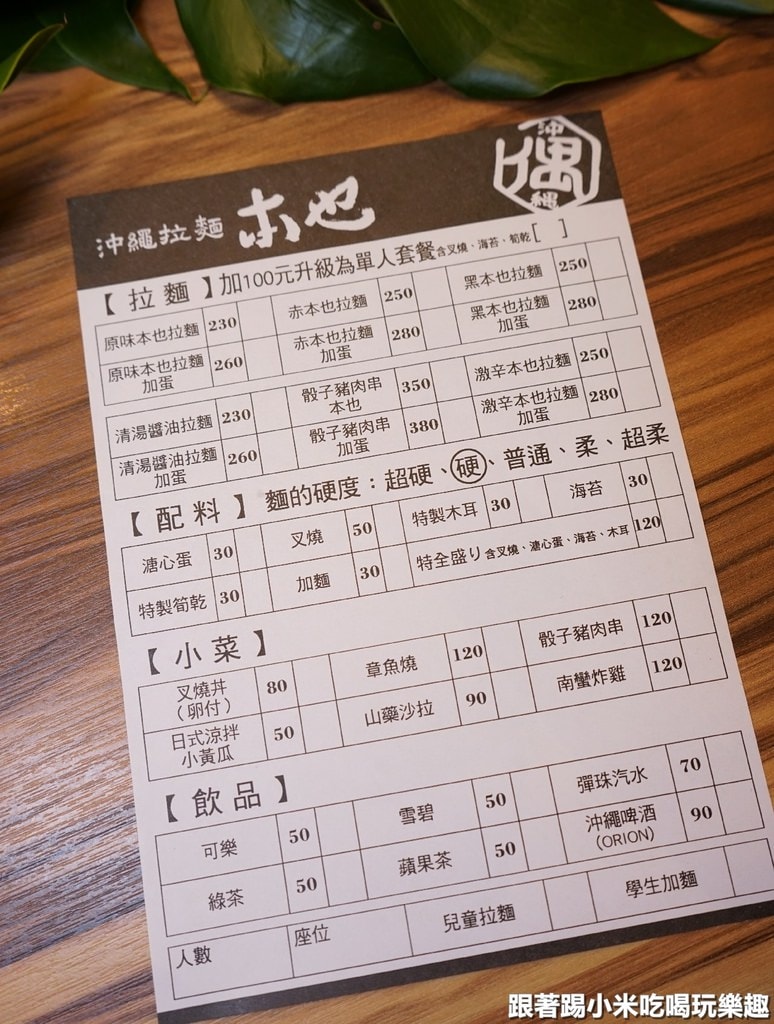 沖繩拉麵 本也
沖
偶
繩
【拉麵】加100元升級為單人套餐含叉燒、海苔、筍乾[ ]
原味本也拉麵 230 赤本也拉麵 250 黑本也拉麵 250
原味本也拉麵加蛋 260 赤本也拉麵加蛋 280 黑本也拉麵加蛋 280
清湯醬油拉麵 230 骰子豬肉串本也 350 激辛本也拉麵 250
清湯醬油拉麵加蛋 260 骰子豬肉串加蛋 380 激辛本也拉麵加蛋 280
【配料】麵的硬度：超硬、硬、普通、柔、超柔
溏心蛋 30 叉燒 50 特製木耳 30 海苔 30
特製筍乾 30 加麵 30 特全盛り含叉燒、溏心蛋、海苔、木耳 120
【小菜】
叉燒丼(卵付) 80 章魚燒 120 骰子豬肉串 120
日式涼拌小黃瓜 50 山藥沙拉 90 南蠻炸雞 120
【飲品】
可樂 50 雪碧 50 彈珠汽水 70
綠茶 50 蘋果茶 50 沖繩啤酒(ORION) 90
人數 座位 兒童拉麵 學生加麵
跟著踢小米吃喝玩樂趣